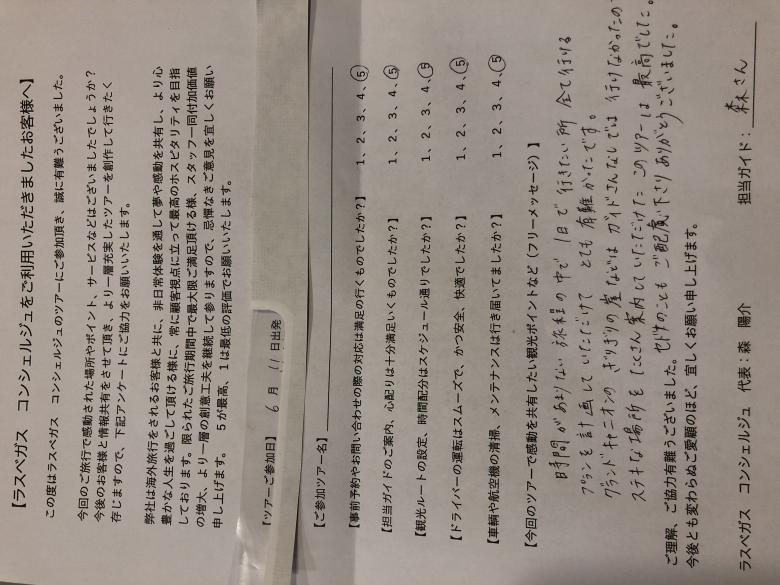 【ラスベガス　コンシェルジュをご利用いただきましたお客様へ】
この度はラスベガス　コンシェルジュのツアーにご参加頂き、誠に有難うございました。
今回のご旅行で感動された場所やポイント、サービスなどはございましたでしょうか？
今後のお客様と情報共有をさせて頂き、より一層充実したツアーを創作して行きたく
存じますので、下記アンケートにご協力をお願いいたします。
弊社は海外旅行をされるお客様と共に、非日常体験を通して夢や感動を共有し、より心
豊かな人生を過ごして頂ける様に、常に顧客視点に立って最高のホスピタリティを目指
しております。限られたご旅行期間中で最大限ご満足頂ける様、スタッフ一同付加価値
の増大、より一層の創意工夫を継続して参りますので、忌憚なきご意見を宜しくお願い
申し上げます。　５が最高、１は最低の評価でお願いいたします。
【ツアーご参加日】　6　月　11　日出発
【ご参加ツアー名】
【事前予約やお問い合わせの際の対応は満足の行くものでしたか？】　1、2、3、4、5
【担当ガイドのご案内、心配りは十分満足いくものでしたか？】　1、2、3、4、5
【観光ルートの設定、時間配分はスケジュール通りでしたか？】　1、2、3、4、5
【ドライバーの運転はスムーズで、かつ安全、快適でしたか？】　1、2、3、4、5
【車輌や航空機の清掃、メンテナンスは行き届いてましたか？】　1、2、3、4、5
【今回のツアーで感動を共有したい観光ポイントなど（フリーメッセージ）】
時間があまりない旅程の中で 1日で 行きたい所 全て行ける
プランを計画していただけて とても有難かったです。
グランドキャニオンの ぎりぎりの崖などは ガイドさんなしでは 行けなかったの
ステキな場所を たくさん案内していただけた このツアーは 最高でした。
のことも ご配慮 下さり ありがとうございました。
ご理解、ご協力有難うございました。
今後とも変わらぬご愛顧のほど、宜しくお願い申し上げます。
ラスベガス　コンシェルジュ　代表：森　陽介　　担当ガイド：　森さん